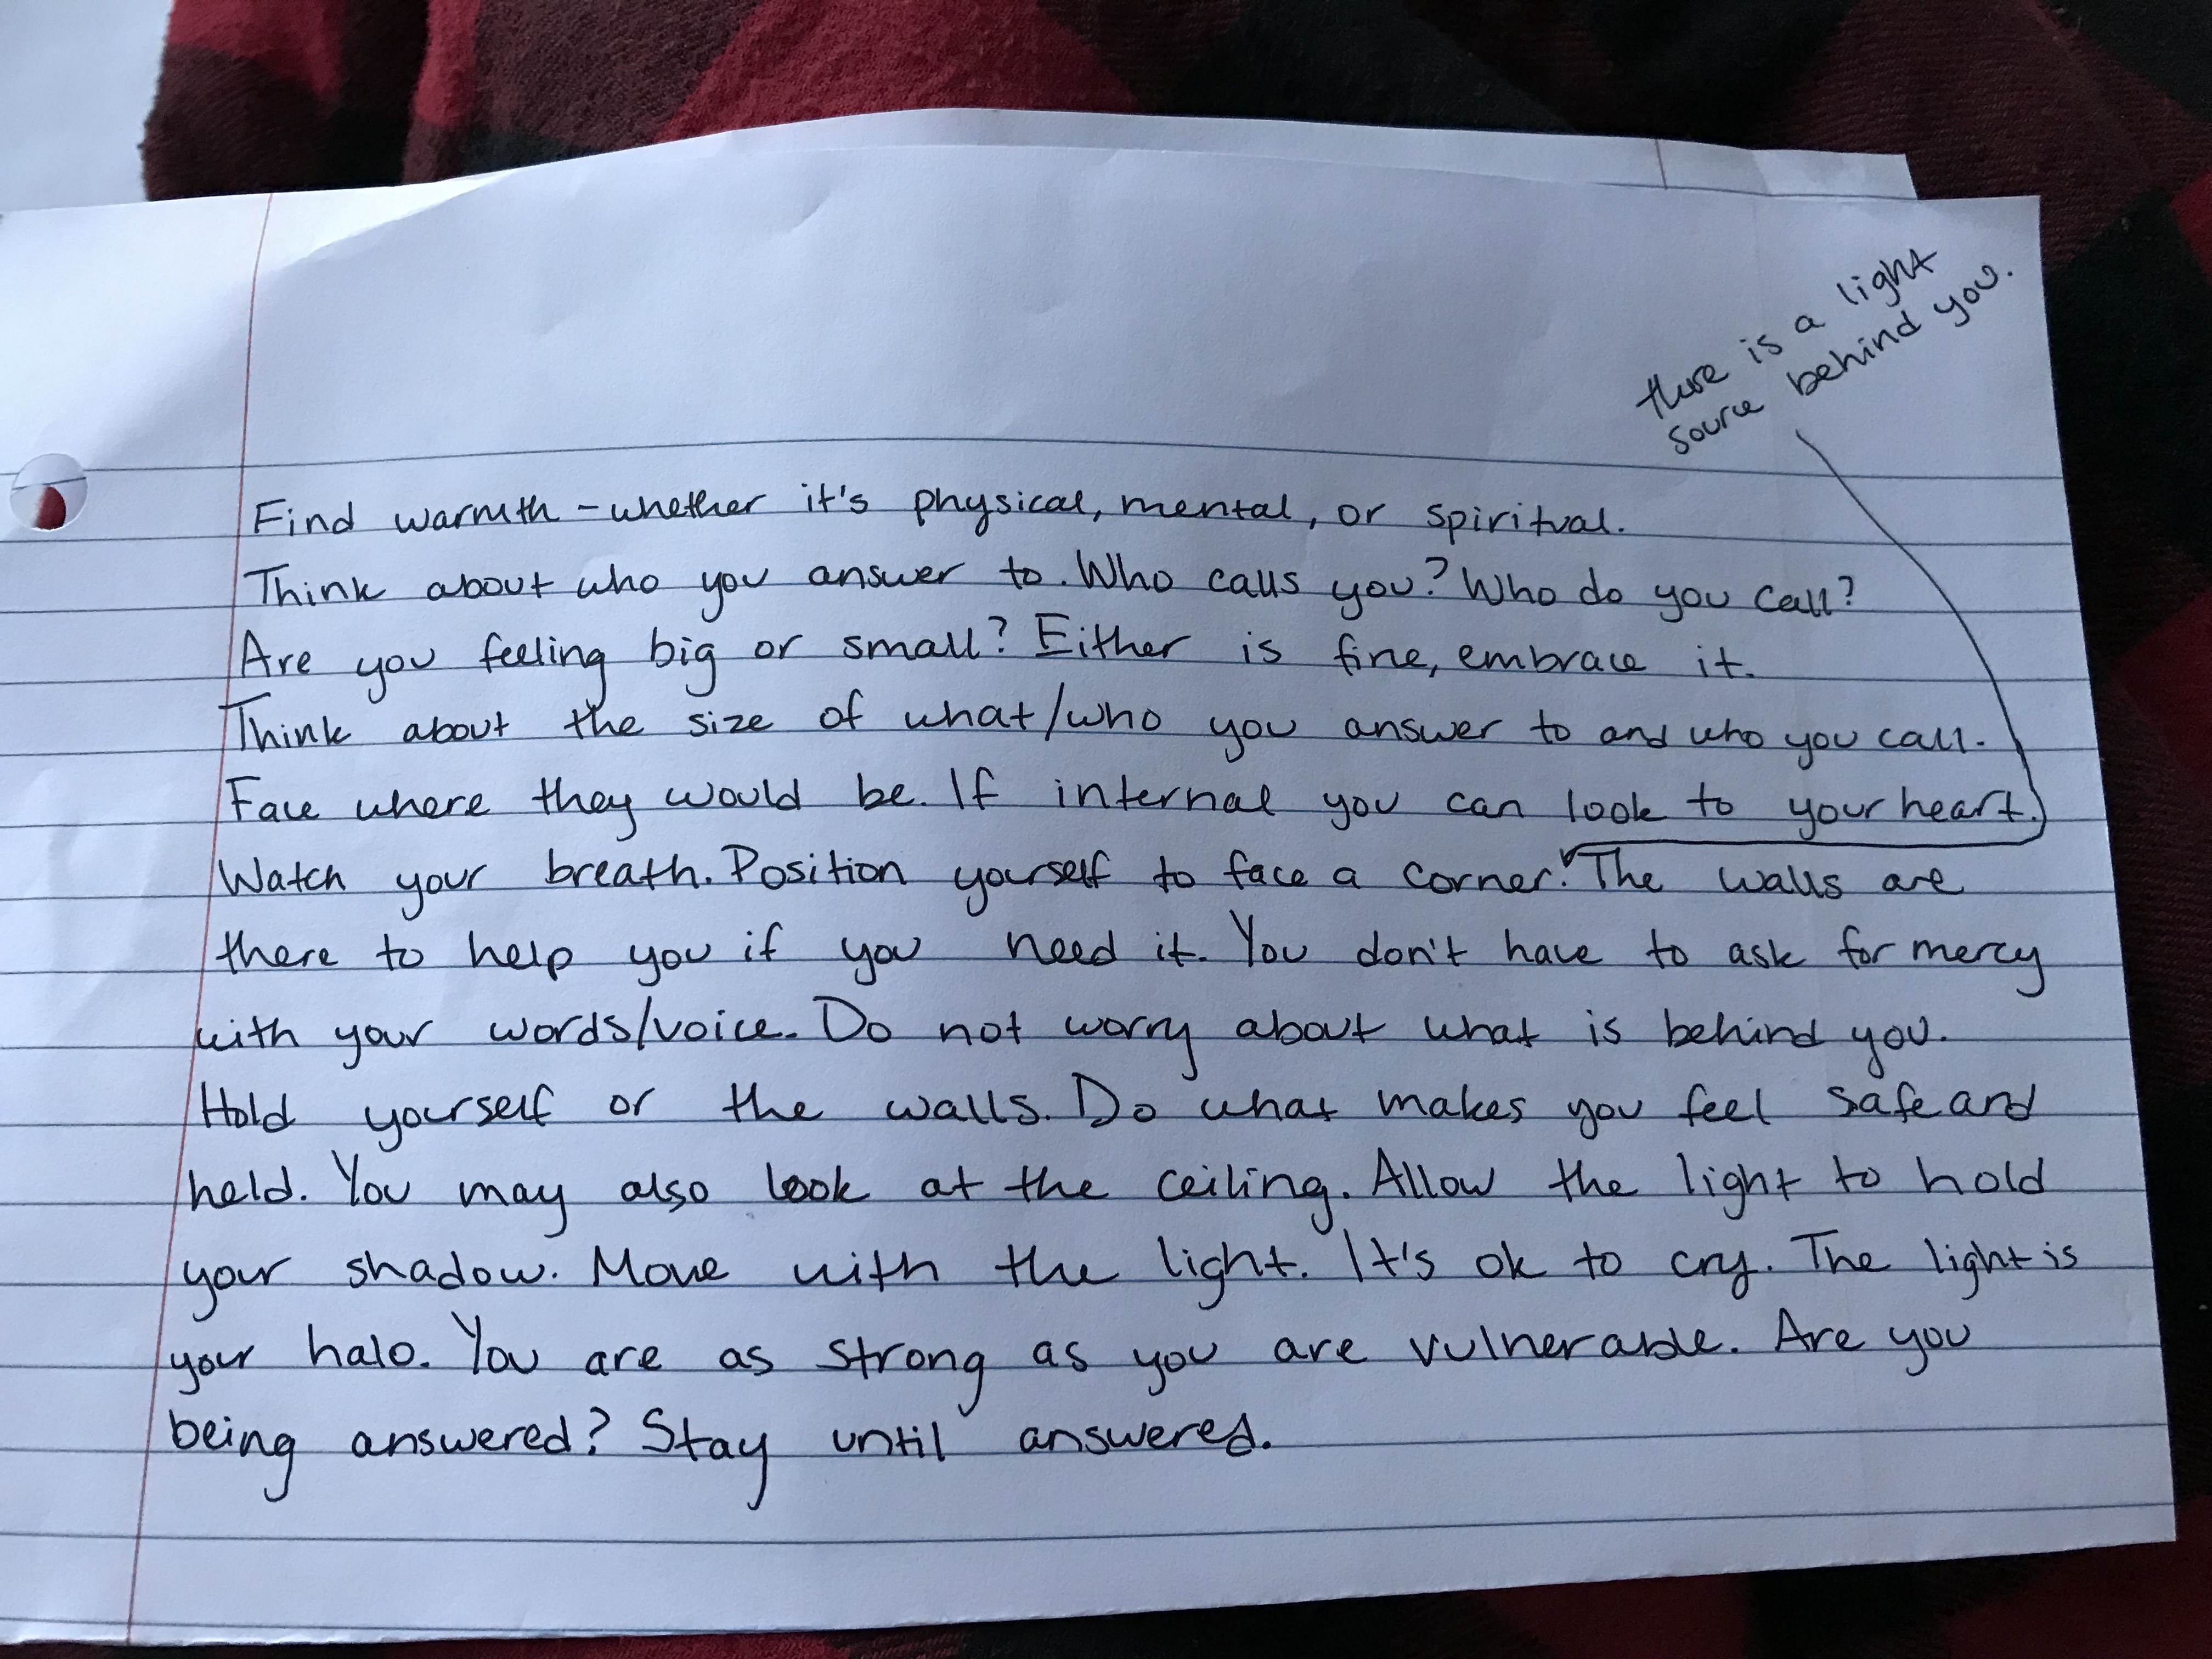 there is a light
source behind you.
Find warmth - whether it's physical, mental, or spiritual.
Think about who you answer to. Who calls you? Who do you call?
Are you feeling big or small? Either is fine, embrace it.
Think about the size of what/who you answer to and who you call.
Face where they would be. If internal you can look to your heart.
Watch your breath. Position yourself to face a corner. The walls are
there to help you if you need it. You don't have to ask for mercy
with your words/voice. Do not worry about what is behind you.
Hold yourself or the walls. Do what makes you feel safe and
held. You may also look at the ceiling. Allow the light to hold
your shadow. Move with the light. It's ok to cry. The light is
your halo. You are as strong as you are vulnerable. Are you
being answered? Stay until answered.